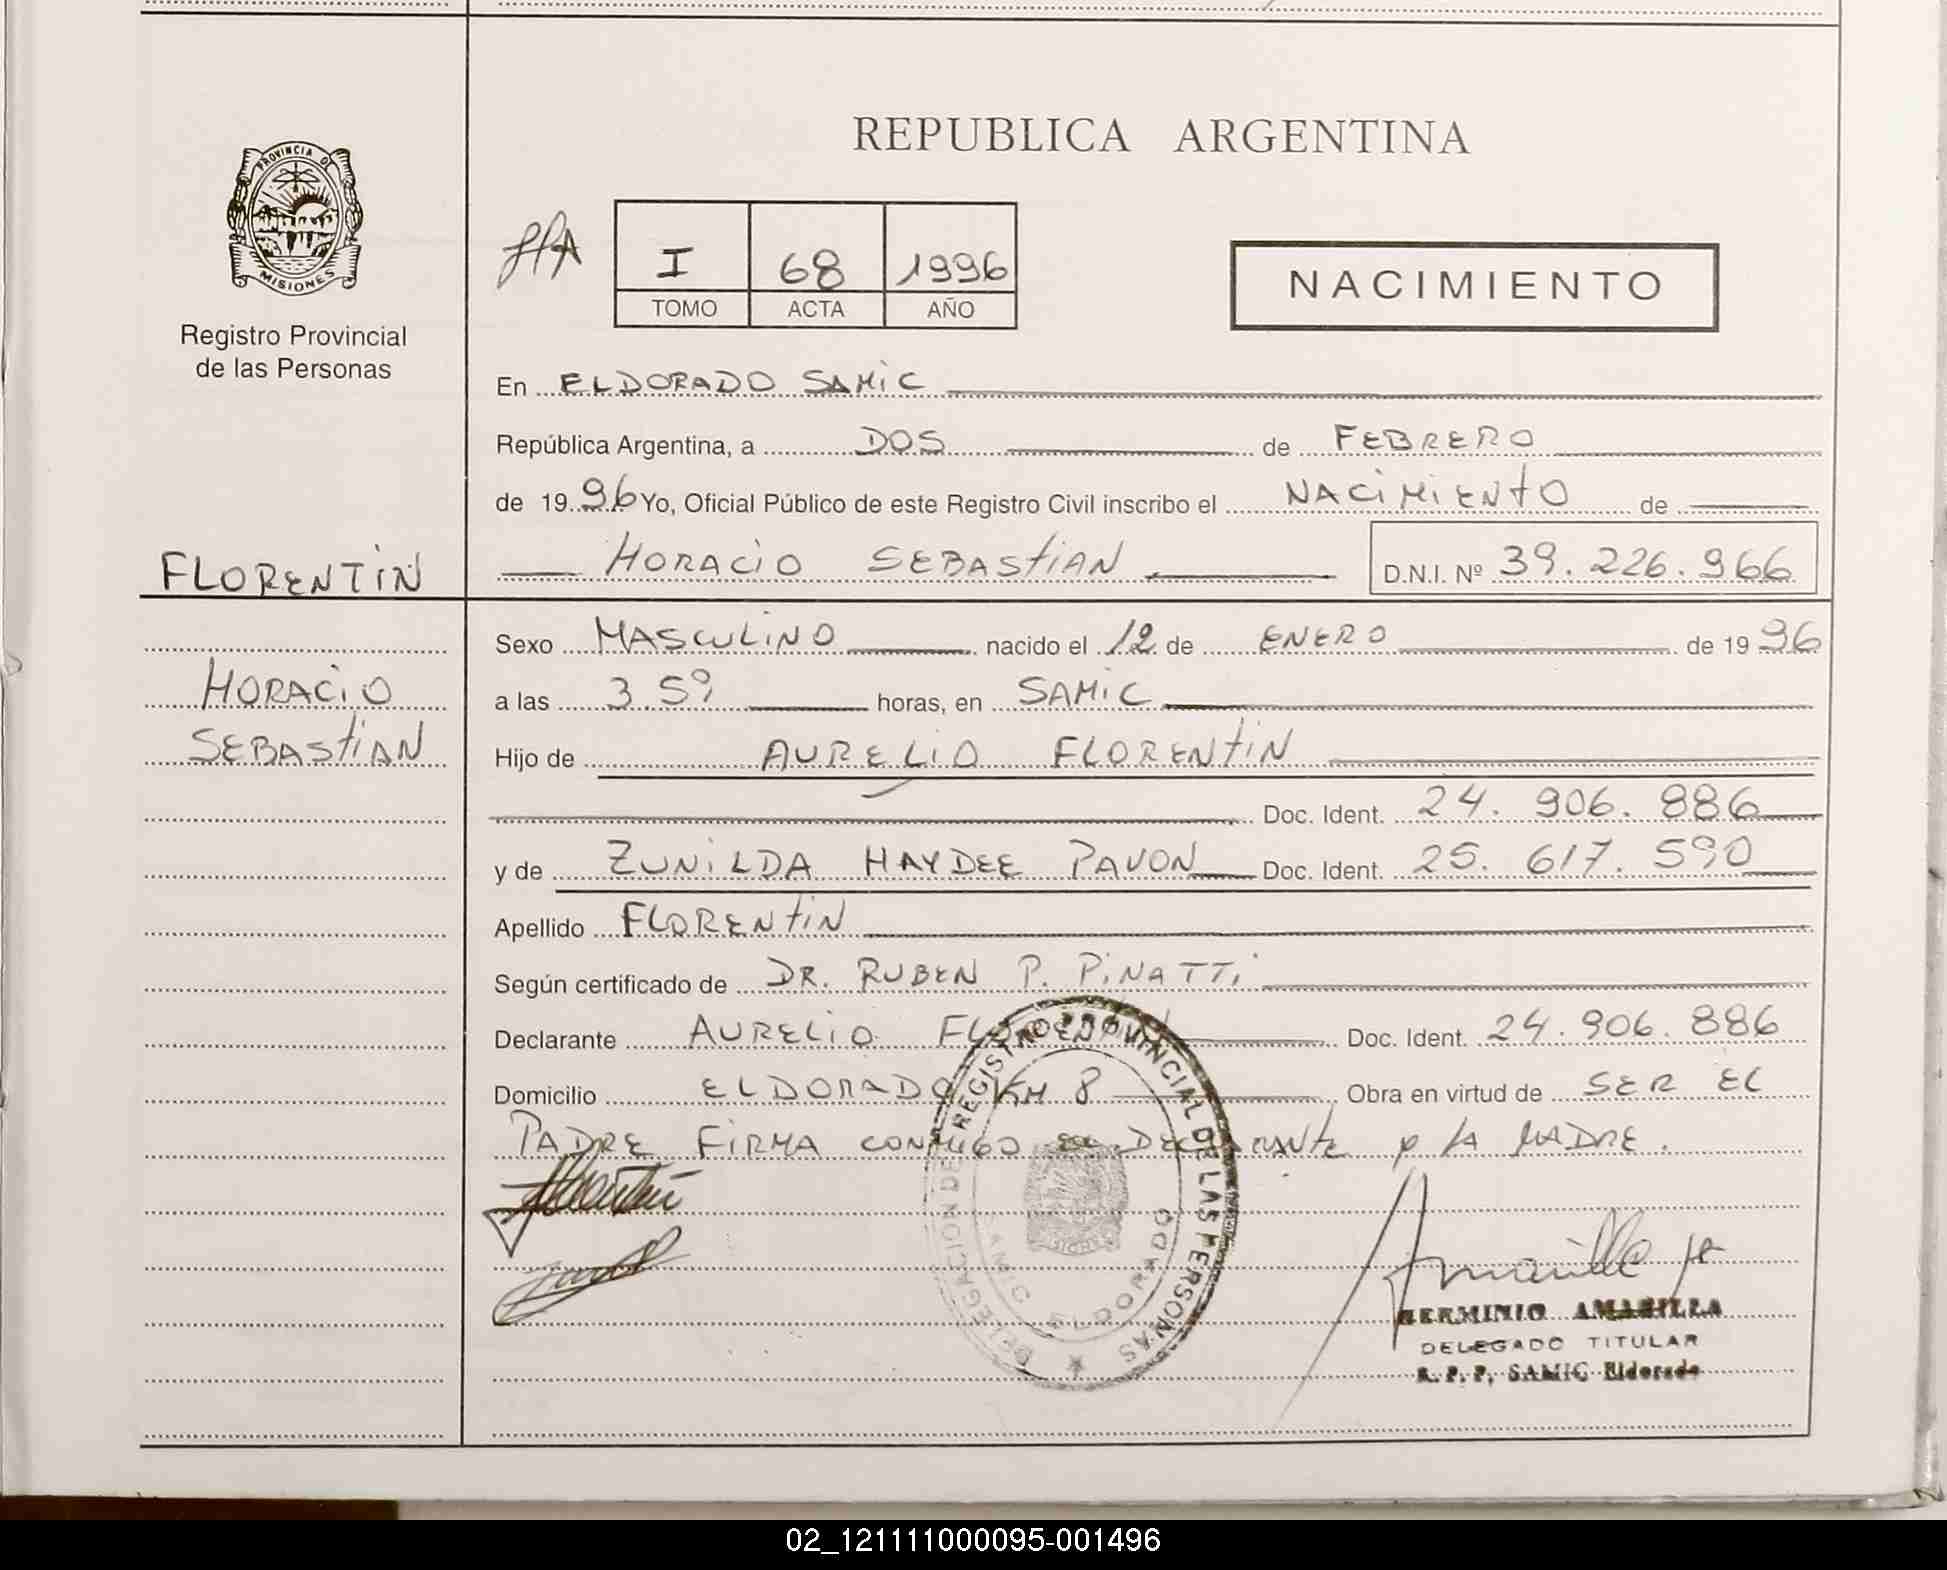 REPUBLICA ARGENTINA
PROVINCIA DE
MISIONES
Registro Provincial
de las Personas
I 68 1996
TOMO ACTA AÑO
NACIMIENTO
En ELDORADO SAMIC
República Argentina, a DOS de FEBRERO
de 1996 Yo, Oficial Público de este Registro Civil inscribo el NACIMIENTO de
FLORENTIN
HORACIO SEBASTIAN D.N.I. Nº 39.226.966
Sexo MASCULINO nacido el 12 de ENERO de 1996
HORACIO
a las 3.59 horas, en SAMIC
SEBASTIAN
Hijo de AURELIO FLORENTIN
Doc. Ident. 24.906.886
y de ZUNILDA HAYDEE PAVON Doc. Ident. 25.617.590
Apellido FLORENTIN
Según certificado de DR. RUBEN P. PINATTI
Declarante AURELIO FLORENTIN Doc. Ident. 24.906.886
Domicilio ELDORADO KM 8 Obra en virtud de SER EL
PADRE FIRMA CONMIGO EL DECLARANTE y LA MADRE.
DELEGACION DE REGISTRO PROVINCIAL DE LAS PERSONAS
SAMIC ELDORADO
MISIONES
GERMINIO AMARILLA
DELEGADO TITULAR
R. P. P. SAMIC Eldorado
02_121111000095-001496